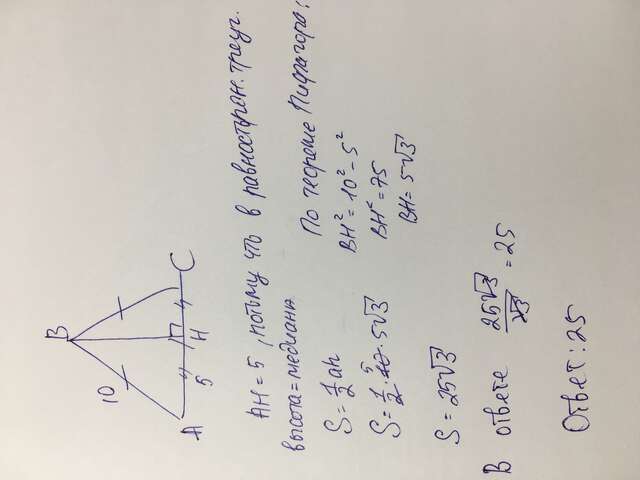 B
10
A
5
H
C
AH = 5, потому что в равносторон. треуг.
высота = медиана
По теореме Пифагора:
S = 1/2 ah
BH² = 10² - 5²
S = 1/2 · 10 5 · 5√3
BH² = 75
BH = 5√3
S = 25√3
В ответе 25√3/√3 = 25
Ответ: 25